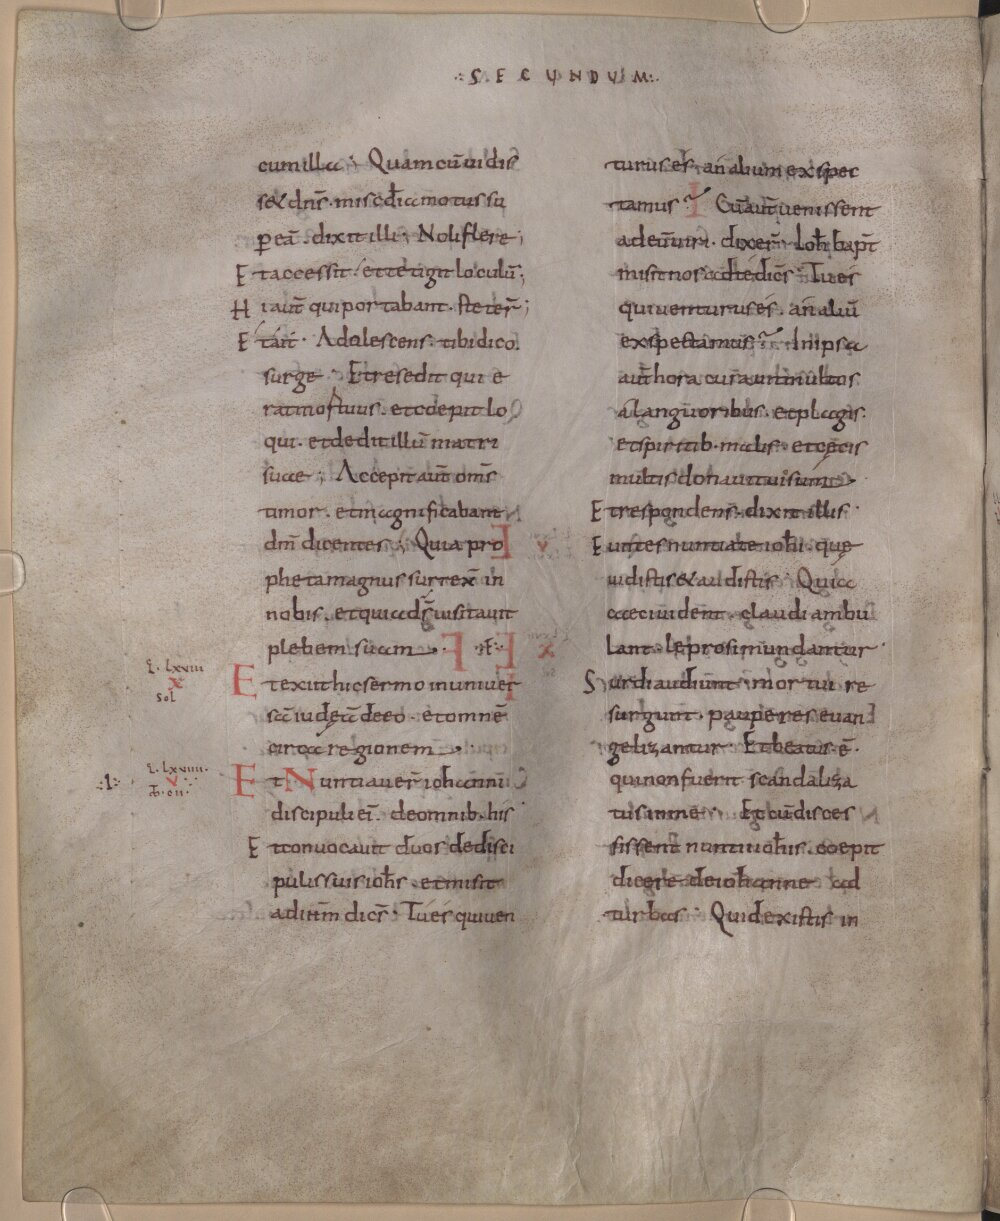 .:SECUNDUM:.
cum illa ; Quam cū uidis
s& dn̄s · misc̄dia motus su
ꝑ eā · dixit illi ; Noli flere ;
Et accessit · et tetigit loculū ;
Hi aut̄ qui portabant · steter̄ ;
Et ait · Adolescens · tibi dico ·
surge · Et resedit qui e
rat mortuus · et coepit lo
qui · et dedit illū matri
suae ; Accepit aut̄ om̄s
timor · et magnificabant
dn̄ dicentes ; Quia pro
pheta magnus surrex̄ in
nobis · et quia ds̄ uisitauit
plebem suam
Et exiit hic sermo in uniuer
sā iudeā de eo · et omnē
circa regionem
Et Nuntiauer̄ iohanni
discipuli ei · de omnib · his
Et conuocauit duos de disci
pulis suis ioh̄s · et misit
ad ih̄m dicēs · Tu es qui uen
L · lxviii
x
sol
L · lxviiii ·
v
·I·
turus ēs · an alium exspec
tamus ? Cū aut̄ uenissent
ad eū uiri · dixer̄ · Ioh̄ bapt̄
misit nos ad te dicēs · Tu es
qui uenturus es · an aliū
expectamus ? In ipsa
aut̄ hora curauit multos
a languoribus · et plagis ·
et spiritib · malis · et cęcis
multis donauit uisum
Et respondens · dixit illis ·
Euntes nuntiate ioh̄i · quę
uidistis & audistis · Quia
caeci uident · claudi ambu
lant · leprosi mundantur
Surdi audiunt · mortui re
surgunt · pauperes euan
gelizantur · Et beatus ē ·
qui non fuerit scandaliza
tus in me · Et cū disces
sissent nuntii ioh̄is · coepit
dicere de iohanne ad
turbas · Quid existis in